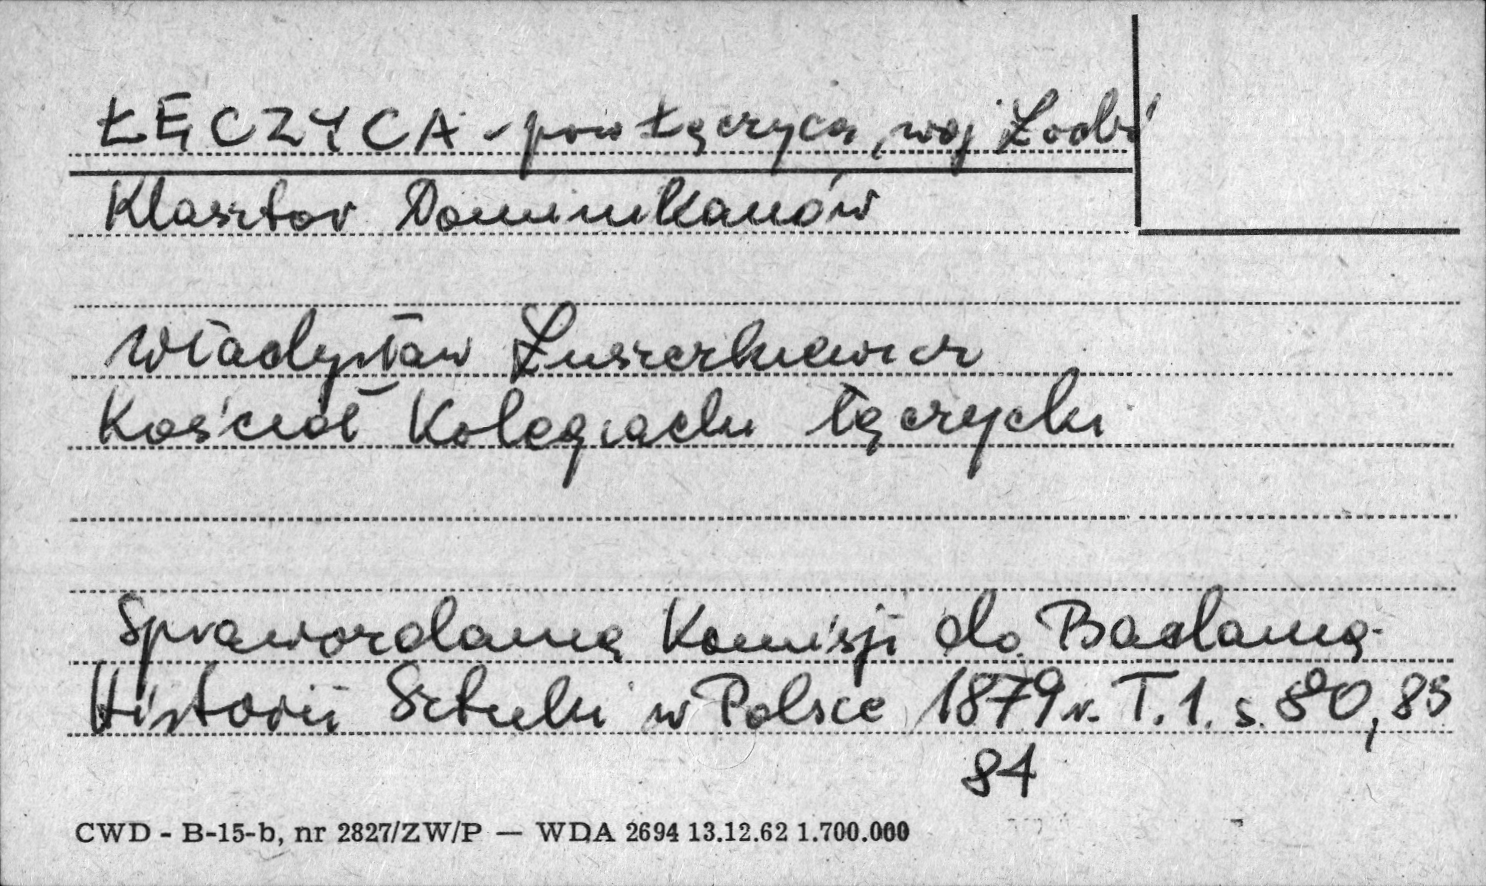 ŁĘCZYCA - pow Łęczyca, woj Łódź
Klasztor Dominikanów
Władysław Łuszczkiewicz
Kościół Kolegiacki łęczycki
Sprawozdania Komisji do Badania
Historii Sztuki w Polsce 1879 r. T. 1. s. 80, 83
84
CWD - B-15-b, nr 2827/ZW/P — WDA 2694 13.12.62 1.700.000